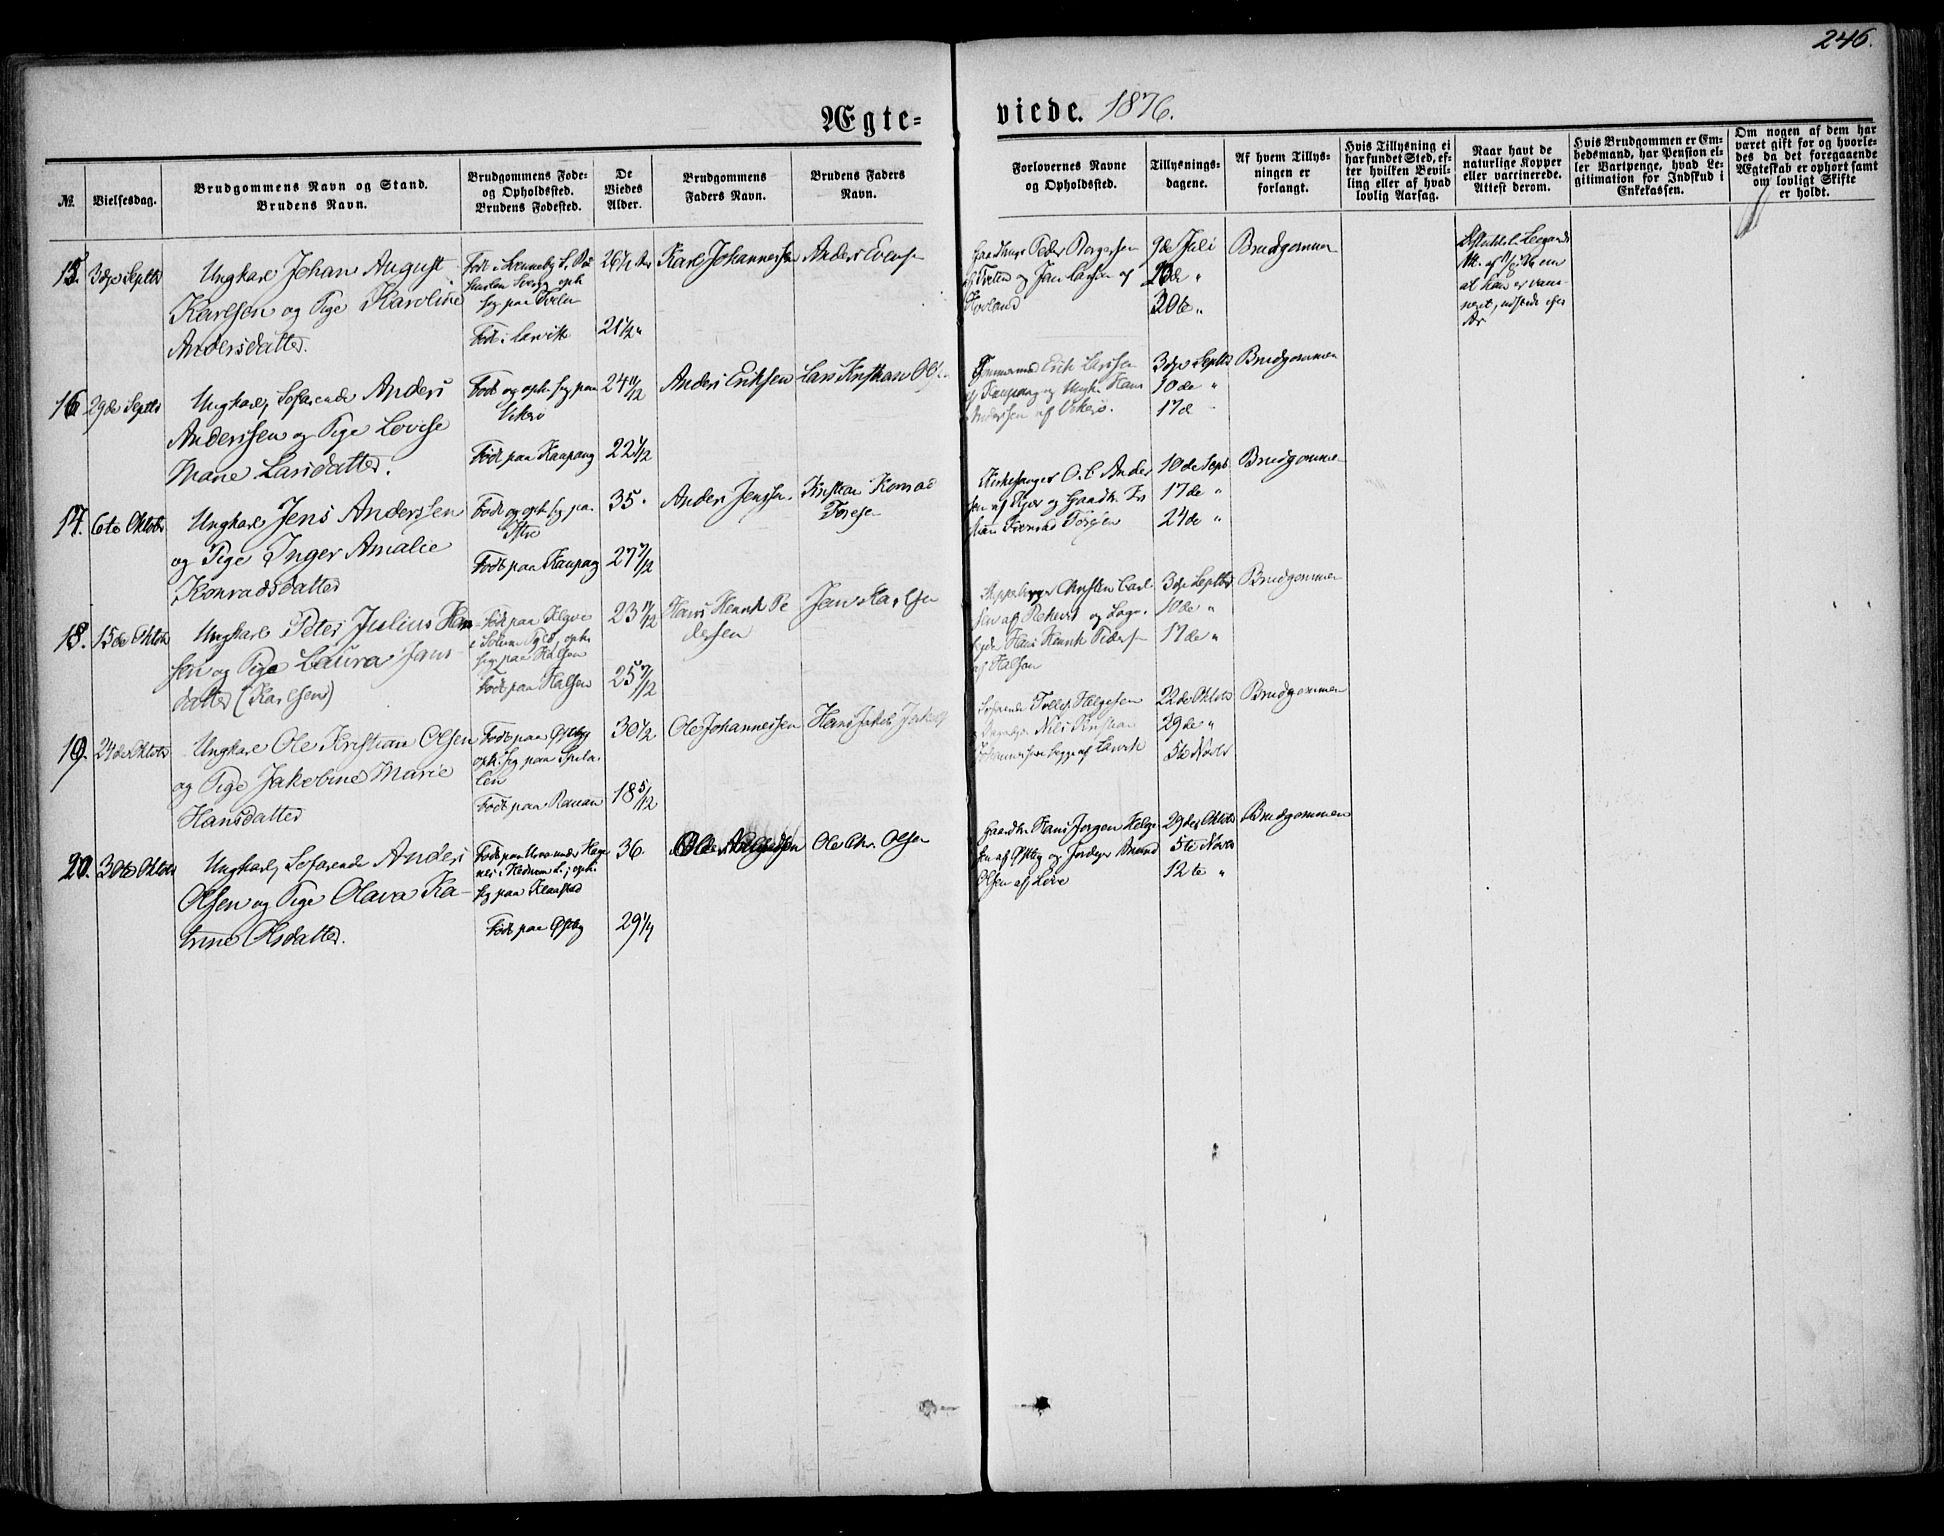 246.
Ægte- viede. 1876.
№.
Vielsesdag.
Brudgommens Navn og Stand.
Brudens Navn.
Brudgommens Føde-
og Opholdssted.
Brudens Fødested.
De
Viedes
Alder.
Brudgommens
Faders Navn.
Brudens Faders
Navn.
Forlovernes Navne
og Opholdssted.
Tillysnings-
dagene.
Af hvem Tillys-
ningen er
forlangt.
Hvis Tillysning ei
har fundet Sted, ef-
ter hvilken Bevil-
ling eller af hvad
lovlig Aarsag.
Naar havt de
naturlige Kopper
eller vaccinerede.
Attest derom.
Hvis Brudgommen er Em-
bedsmand, har Pension el-
ler Vartpenge, hvad Le-
gitimation for Indskud i
Enkekassen.
Om nogen af dem har
været gift før og hvorle-
des da det foregaaende
Ægteskab er ophørt samt
om lovligt Skifte
er holdt.
15.
3die Septbr
Ungkarl Johan August
Karlsen og Pige Karoline
Andersdatter.
opth
sig paa Tveten
Født i Larvik
26 1/2 Aar
21 1/2 "
Karl Johannessen
Anders Evensen
Peder Borgersen
af Tveten og Jan Larsen af
9de Juli
23de "
30te "
Brudgommen
at han er vacci-
neret
16
29de Septbr
Ungkarl, Søfarende Anders
Anderssen og Pige Lovise
Marie Larsdatter.
Født og opth. sig paa
Vikerø
Født paa Kaupang
24 11/12
22 1/2
Anders Eriksen
Lars Kristian Ols
Tømmermand Erik Larssen
af Kaupang og Ungk. Hans
Anderssen af Vikerø.
3die Septbr
10de "
17de "
Brudgommen
17.
6te Oktobr
Ungkarl Jens Anderssen
og Pige Inger Amalie
Konradsdatter
Født og opth. sig paa
Istre
Født paa Kaupang
35.
27 7/12
Anders Jenssen.
Kristian Konrad
Toresen
Kirkesanger O. C. Ander
sen af
10de Septb.
17de "
24de "
Brudgommen
18.
15de Oktob
Ungkarl Peter Julius Han
sen og Pige Laura Jans
datter (Karlsen)
Født paa
opth.
sig paa Halsen
Født paa Halsen
23 11/12
25 7/12
Hans Henrik Pe
dersen
Jan Karlsen
Christen Carl
sen af
Hans Henrik Peders
af Halsen
3die Septbr
10de "
17de "
Brudgommen
19.
24de Oktobr
Ungkarl Ole Kristian Olsen
og Pige Jakobine Marie
Hansdatter
Født paa Østby
opth. sig paa
Født paa
30 1/2
18 5/12
Ole Johannessen
Hans Jakob
Søfarende Tollef Helgesen
Nils Kristian
Johannessen begge af Larvik
22de Oktobr
29de "
5te Novbr
Brudgommen
20.
30te Oktobr
Ungkarl, Søfarende Anders
Olsen og Pige Olava Ka-
trine Olsdatter.
Født paa
i Hedrum S., opth.
sig paa Klaastad
Født paa Østby
36.
29 1/4
Ole Chr. Olsen
Gaardbr. Hans Jørgen Helge
sen af Østby og
Olsen af Løve
29de Oktobr
5te Novbr
12te "
Brudgommen